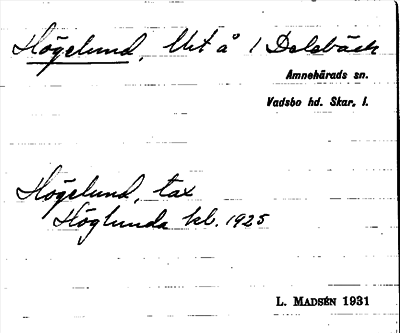 Högelund, Utå 1 Delsbäck
Amnehärads sn.
Vadsbo hd. Skar. l.
Högelund, tax
Höglunda kl. 1925
L. MADSÉN 1931